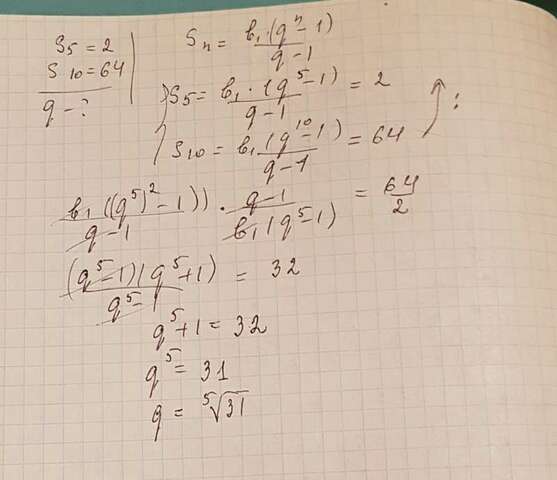 S₅ = 2
S₁₀ = 64
q - ?
Sₙ = b₁(qⁿ - 1) / q - 1
S₅ = b₁ · (q⁵ - 1) / q - 1 = 2
S₁₀ = b₁(q¹⁰ - 1) / q - 1 = 64 :
b₁((q⁵)² - 1)) / q - 1 · q - 1 / b₁(q⁵ - 1) = 64 / 2
(q⁵ - 1)(q⁵ + 1) / q⁵ - 1 = 32
q⁵ + 1 = 32
q⁵ = 31
q = ⁵√31